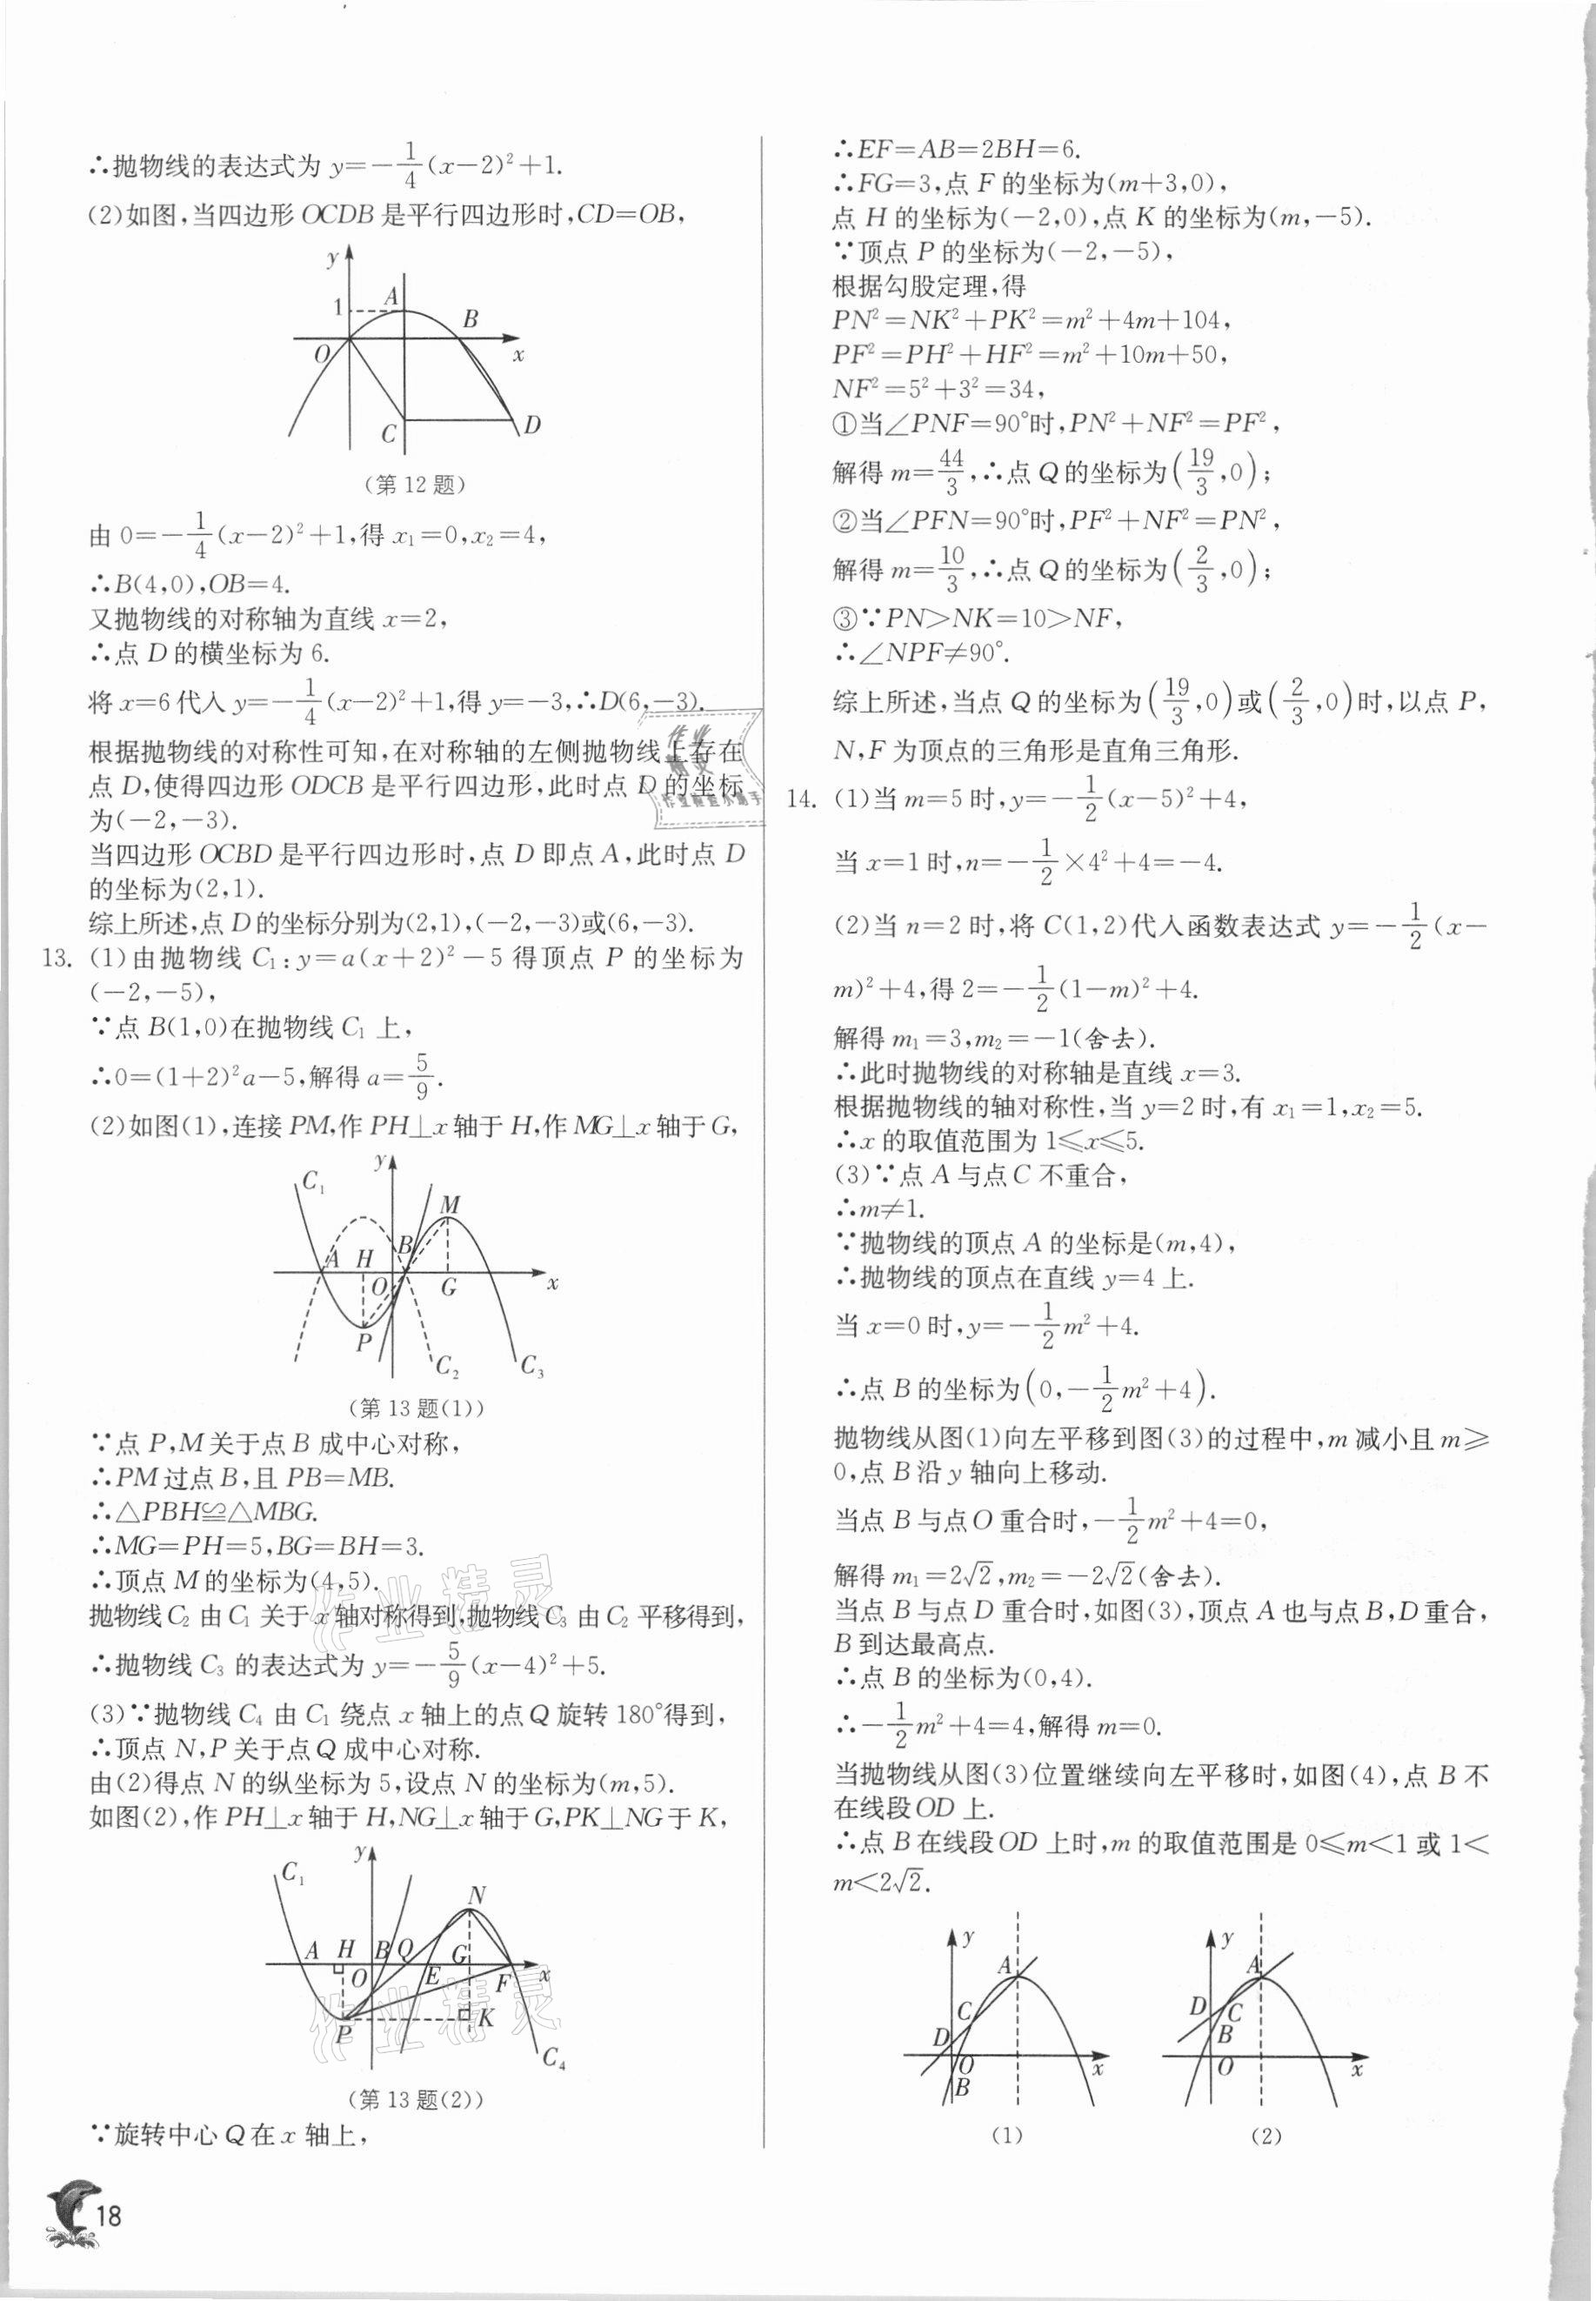 ∴抛物线的表达式为 y=-1/4(x-2)²+1.
(2)如图,当四边形 OCDB 是平行四边形时,CD=OB,
y
1
A
B
O
x
C
D
(第12题)
由 0=-1/4(x-2)²+1,得 x₁=0,x₂=4,
∴B(4,0),OB=4.
又抛物线的对称轴为直线 x=2,
∴点 D 的横坐标为 6.
将 x=6 代入 y=-1/4(x-2)²+1,得 y=-3,∴D(6,-3).
根据抛物线的对称性可知,在对称轴的左侧抛物线上存在
点 D,使得四边形 ODCB 是平行四边形,此时点 D 的坐标
为(-2,-3).
当四边形 OCBD 是平行四边形时,点 D 即点 A,此时点 D
的坐标为(2,1).
综上所述,点 D 的坐标分别为(2,1),(-2,-3)或(6,-3).
13. (1)由抛物线 C₁:y=a(x+2)²-5 得顶点 P 的坐标为
(-2,-5),
∵点 B(1,0)在抛物线 C₁ 上,
∴0=(1+2)²a-5,解得 a=5/9.
(2)如图(1),连接 PM,作 PH⊥x 轴于 H,作 MG⊥x 轴于 G,
C₁
y
M
A
H
B
O
G
x
P
C₂
C₃
(第13题(1))
∵点 P,M 关于点 B 成中心对称,
∴PM 过点 B,且 PB=MB.
∴△PBH≌△MBG.
∴MG=PH=5,BG=BH=3.
∴顶点 M 的坐标为(4,5).
抛物线 C₂ 由 C₁ 关于 x 轴对称得到,抛物线 C₃ 由 C₂ 平移得到,
∴抛物线 C₃ 的表达式为 y=-5/9(x-4)²+5.
(3)∵抛物线 C₄ 由 C₁ 绕点 x 轴上的点 Q 旋转 180°得到,
∴顶点 N,P 关于点 Q 成中心对称.
由(2)得点 N 的纵坐标为 5,设点 N 的坐标为(m,5).
如图(2),作 PH⊥x 轴于 H,NG⊥x 轴于 G,PK⊥NG 于 K,
C₁
y
N
A
H
B
Q
G
O
E
F
x
P
K
C₄
(第13题(2))
∵旋转中心 Q 在 x 轴上,
18
∴EF=AB=2BH=6.
∴FG=3,点 F 的坐标为(m+3,0),
点 H 的坐标为(-2,0),点 K 的坐标为(m,-5).
∵顶点 P 的坐标为(-2,-5),
根据勾股定理,得
PN²=NK²+PK²=m²+4m+104,
PF²=PH²+HF²=m²+10m+50,
NF²=5²+3²=34,
①当∠PNF=90°时,PN²+NF²=PF²,
解得 m=44/3,∴点 Q 的坐标为(19/3,0);
②当∠PFN=90°时,PF²+NF²=PN²,
解得 m=10/3,∴点 Q 的坐标为(2/3,0);
③∵PN>NK=10>NF,
∴∠NPF≠90°.
综上所述,当点 Q 的坐标为(19/3,0)或(2/3,0)时,以点 P,
N,F 为顶点的三角形是直角三角形.
14. (1)当 m=5 时,y=-1/2(x-5)²+4,
当 x=1 时,n=-1/2×4²+4=-4.
(2)当 n=2 时,将 C(1,2)代入函数表达式 y=-1/2(x-
m)²+4,得 2=-1/2(1-m)²+4.
解得 m₁=3,m₂=-1(舍去).
∴此时抛物线的对称轴是直线 x=3.
根据抛物线的轴对称性,当 y=2 时,有 x₁=1,x₂=5.
∴x 的取值范围为 1≤x≤5.
(3)∵点 A 与点 C 不重合,
∴m≠1.
∵抛物线的顶点 A 的坐标是(m,4),
∴抛物线的顶点在直线 y=4 上.
当 x=0 时,y=-1/2m²+4.
∴点 B 的坐标为(0,-1/2m²+4).
抛物线从图(1)向左平移到图(3)的过程中,m 减小且 m≥
0,点 B 沿 y 轴向上移动.
当点 B 与点 O 重合时,-1/2m²+4=0,
解得 m₁=2√2,m₂=-2√2(舍去).
当点 B 与点 D 重合时,如图(3),顶点 A 也与点 B,D 重合,
B 到达最高点.
∴点 B 的坐标为(0,4).
∴-1/2m²+4=4,解得 m=0.
当抛物线从图(3)位置继续向左平移时,如图(4),点 B 不
在线段 OD 上.
∴点 B 在线段 OD 上时,m 的取值范围是 0≤m<1 或 1<
m<2√2.
y
A
C
D
O
B
x
(1)
y
A
D
C
B
O
x
(2)
作业精灵
作业精灵
作业精灵